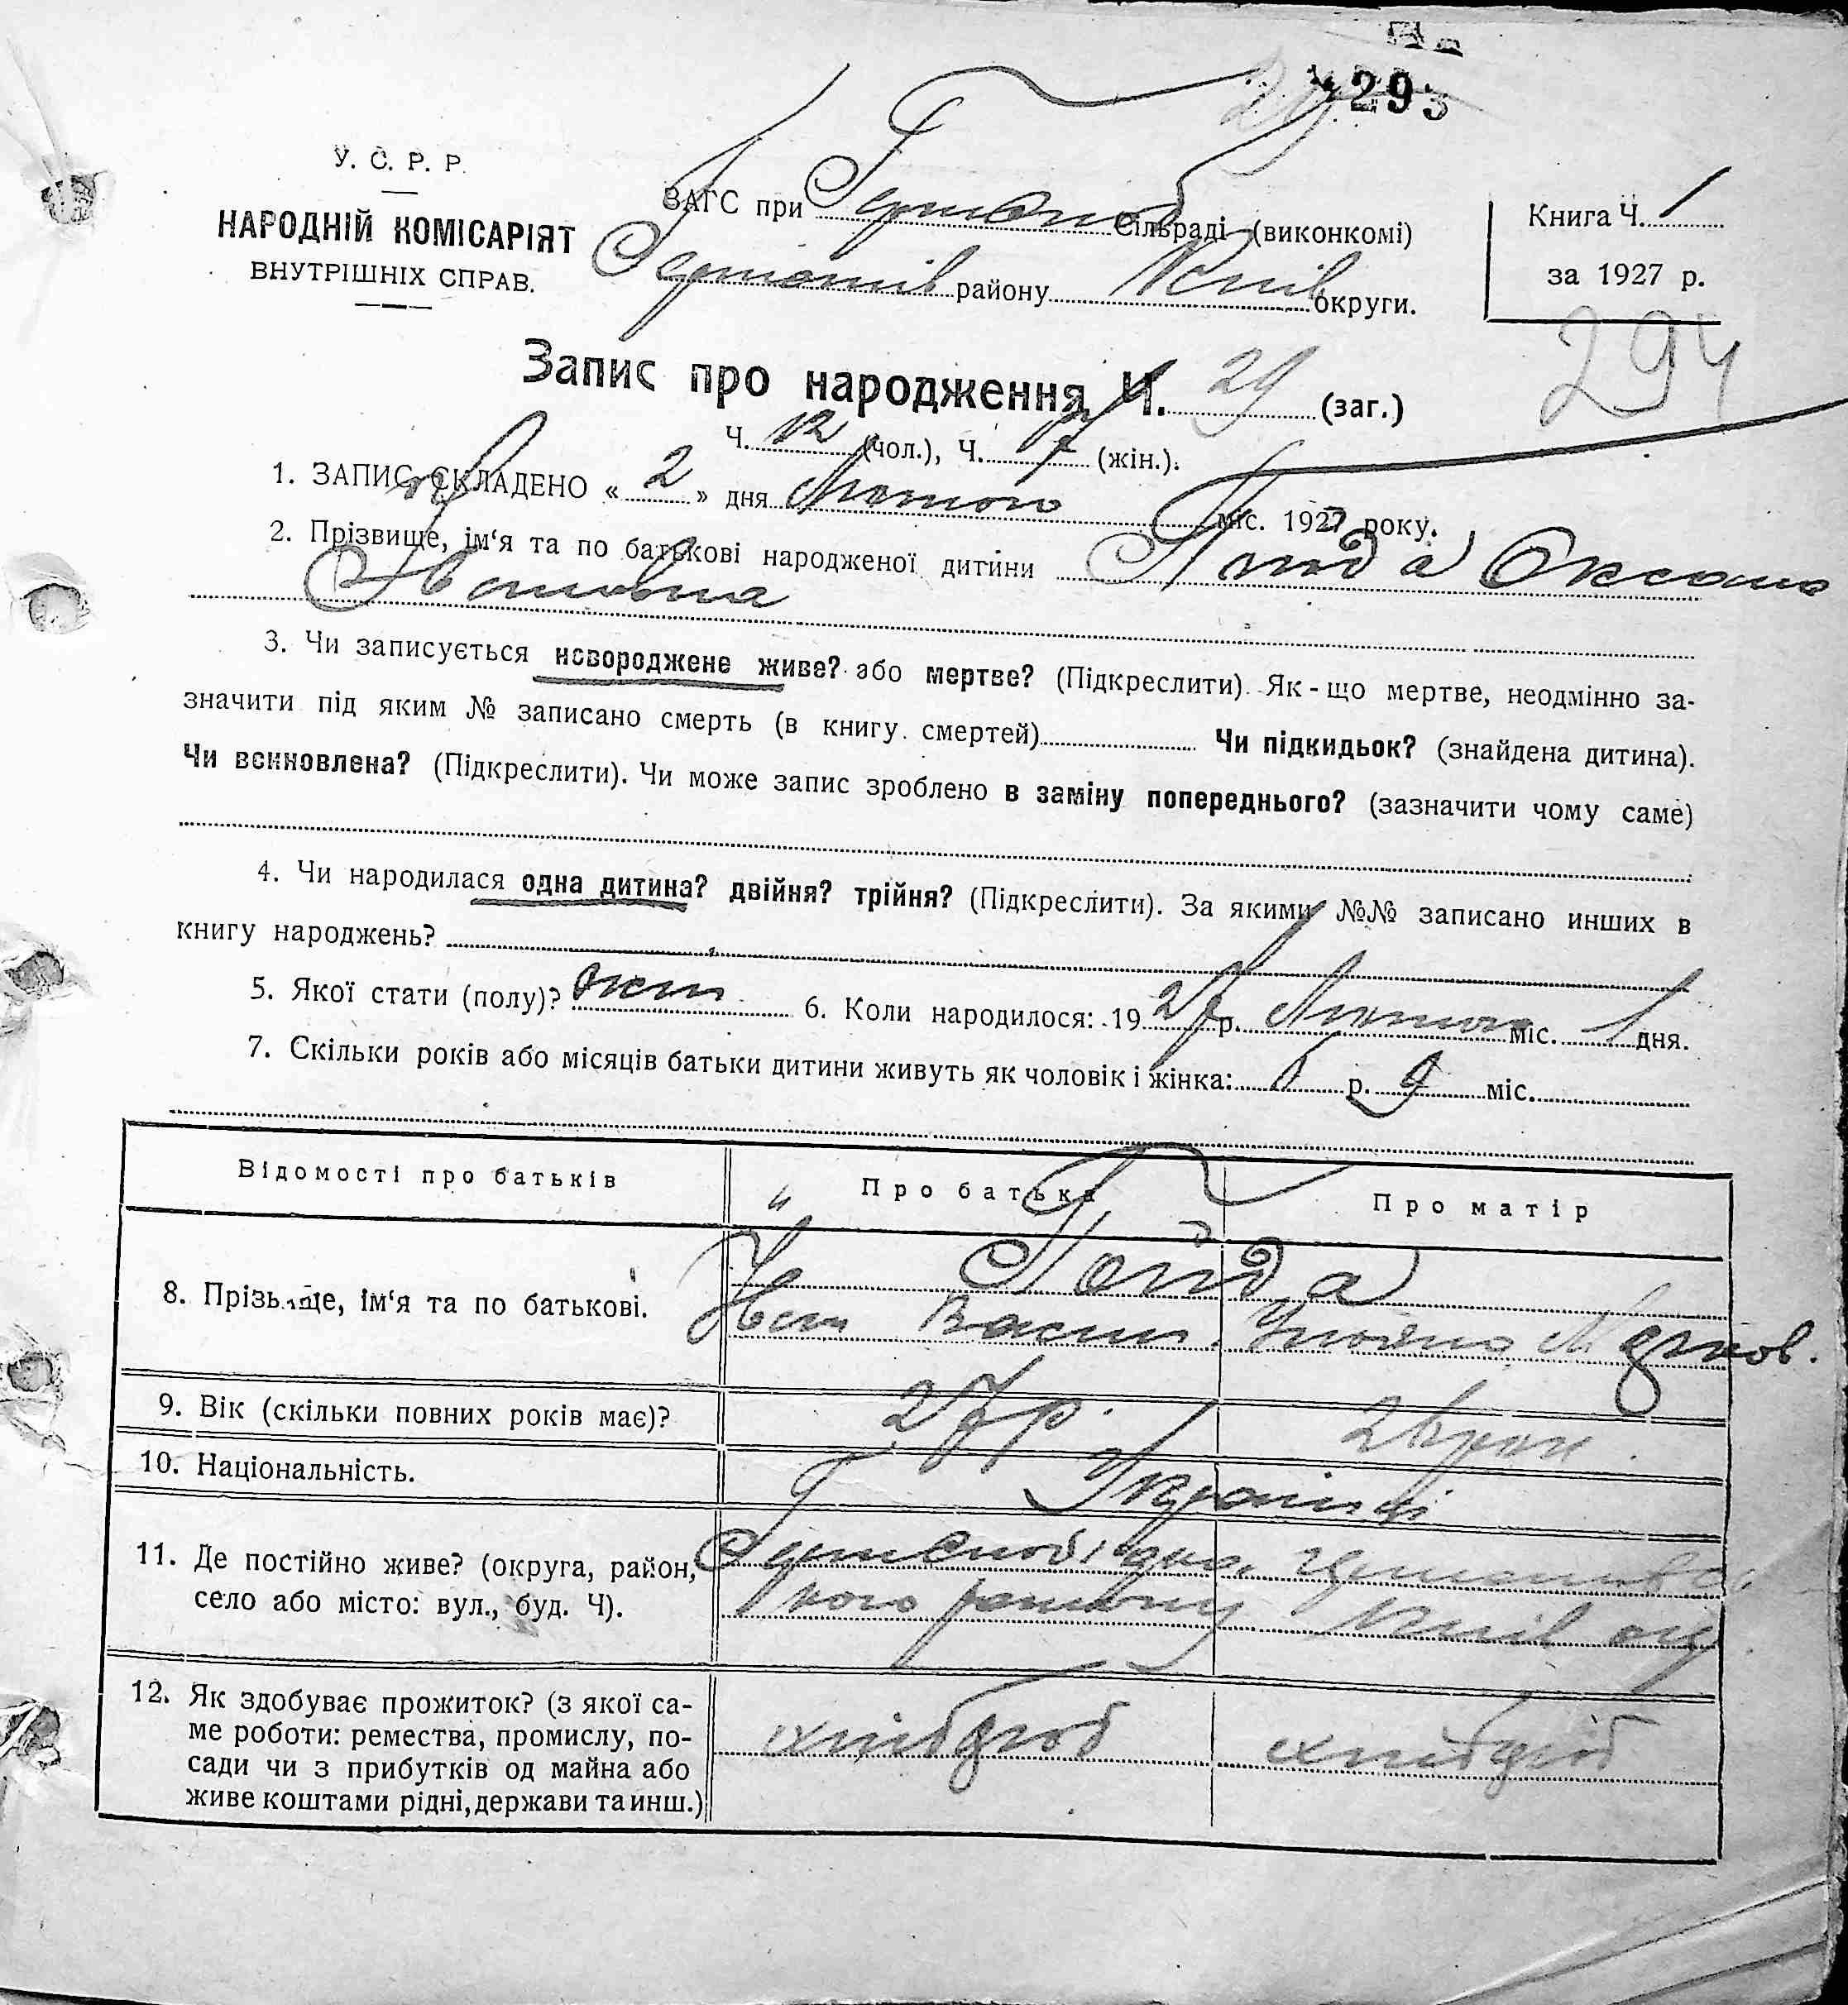 293
У. С. Р. Р.
НАРОДНІЙ КОМІСАРІЯТ
ВНУТРІШНІХ СПРАВ.
ЗАГС при сільраді (виконкомі)
району Київ округи.
Книга Ч. 1
за 1927 р.
294
Запис про народження Ч. 29 (заг.)
Ч. 12 (чол.), Ч. 17 (жін.).
1. ЗАПИС СКЛАДЕНО « 2 » дня Лютого міс. 1927 року.
2. Прізвище, ім‘я та по батькові народженої дитини Гойда Оксана
Івановна
3. Чи записується новороджене живе? або мертве? (Підкреслити). Як-що мертве, неодмінно за-
значити під яким № записано смерть (в книгу смертей) Чи підкидьок? (знайдена дитина).
Чи всиновлена? (Підкреслити). Чи може запис зроблено в заміну попереднього? (зазначити чому саме)
4. Чи народилася одна дитина? двійня? трійня? (Підкреслити). За якими №№ записано инших в
книгу народжень?
5. Якої стати (полу)? жін 6. Коли народилося: 1927 р. Лютого міс. 1 дня.
7. Скільки років або місяців батьки дитини живуть як чоловік і жінка: р. 9 міс.
Відомості про батьків Про батька Про матір
8. Прізвище, ім‘я та по батькові. Гойда
Іван Васил. Уляна
9. Вік (скільки повних років має)? 27 р. 26 рок.
10. Національність. Українці
11. Де постійно живе? (округа, район,
село або місто: вул., буд. Ч). кого району Київ окр
12. Як здобуває прожиток? (з якої са-
ме роботи: ремества, промислу, по-
сади чи з прибутків од майна або
живе коштами рідні, держави та инш.)
хлібороб хлібороб